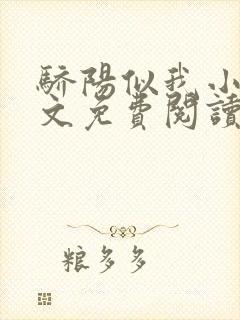 驕陽似我小
文免費閱讀
粮多多